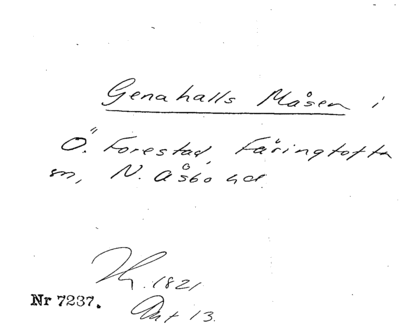 Genahalls Måsen i
Ö. Forestad, Färingtofta
sn, N. Åsbo hd.
1821
Nr 7237.
Akt 13.